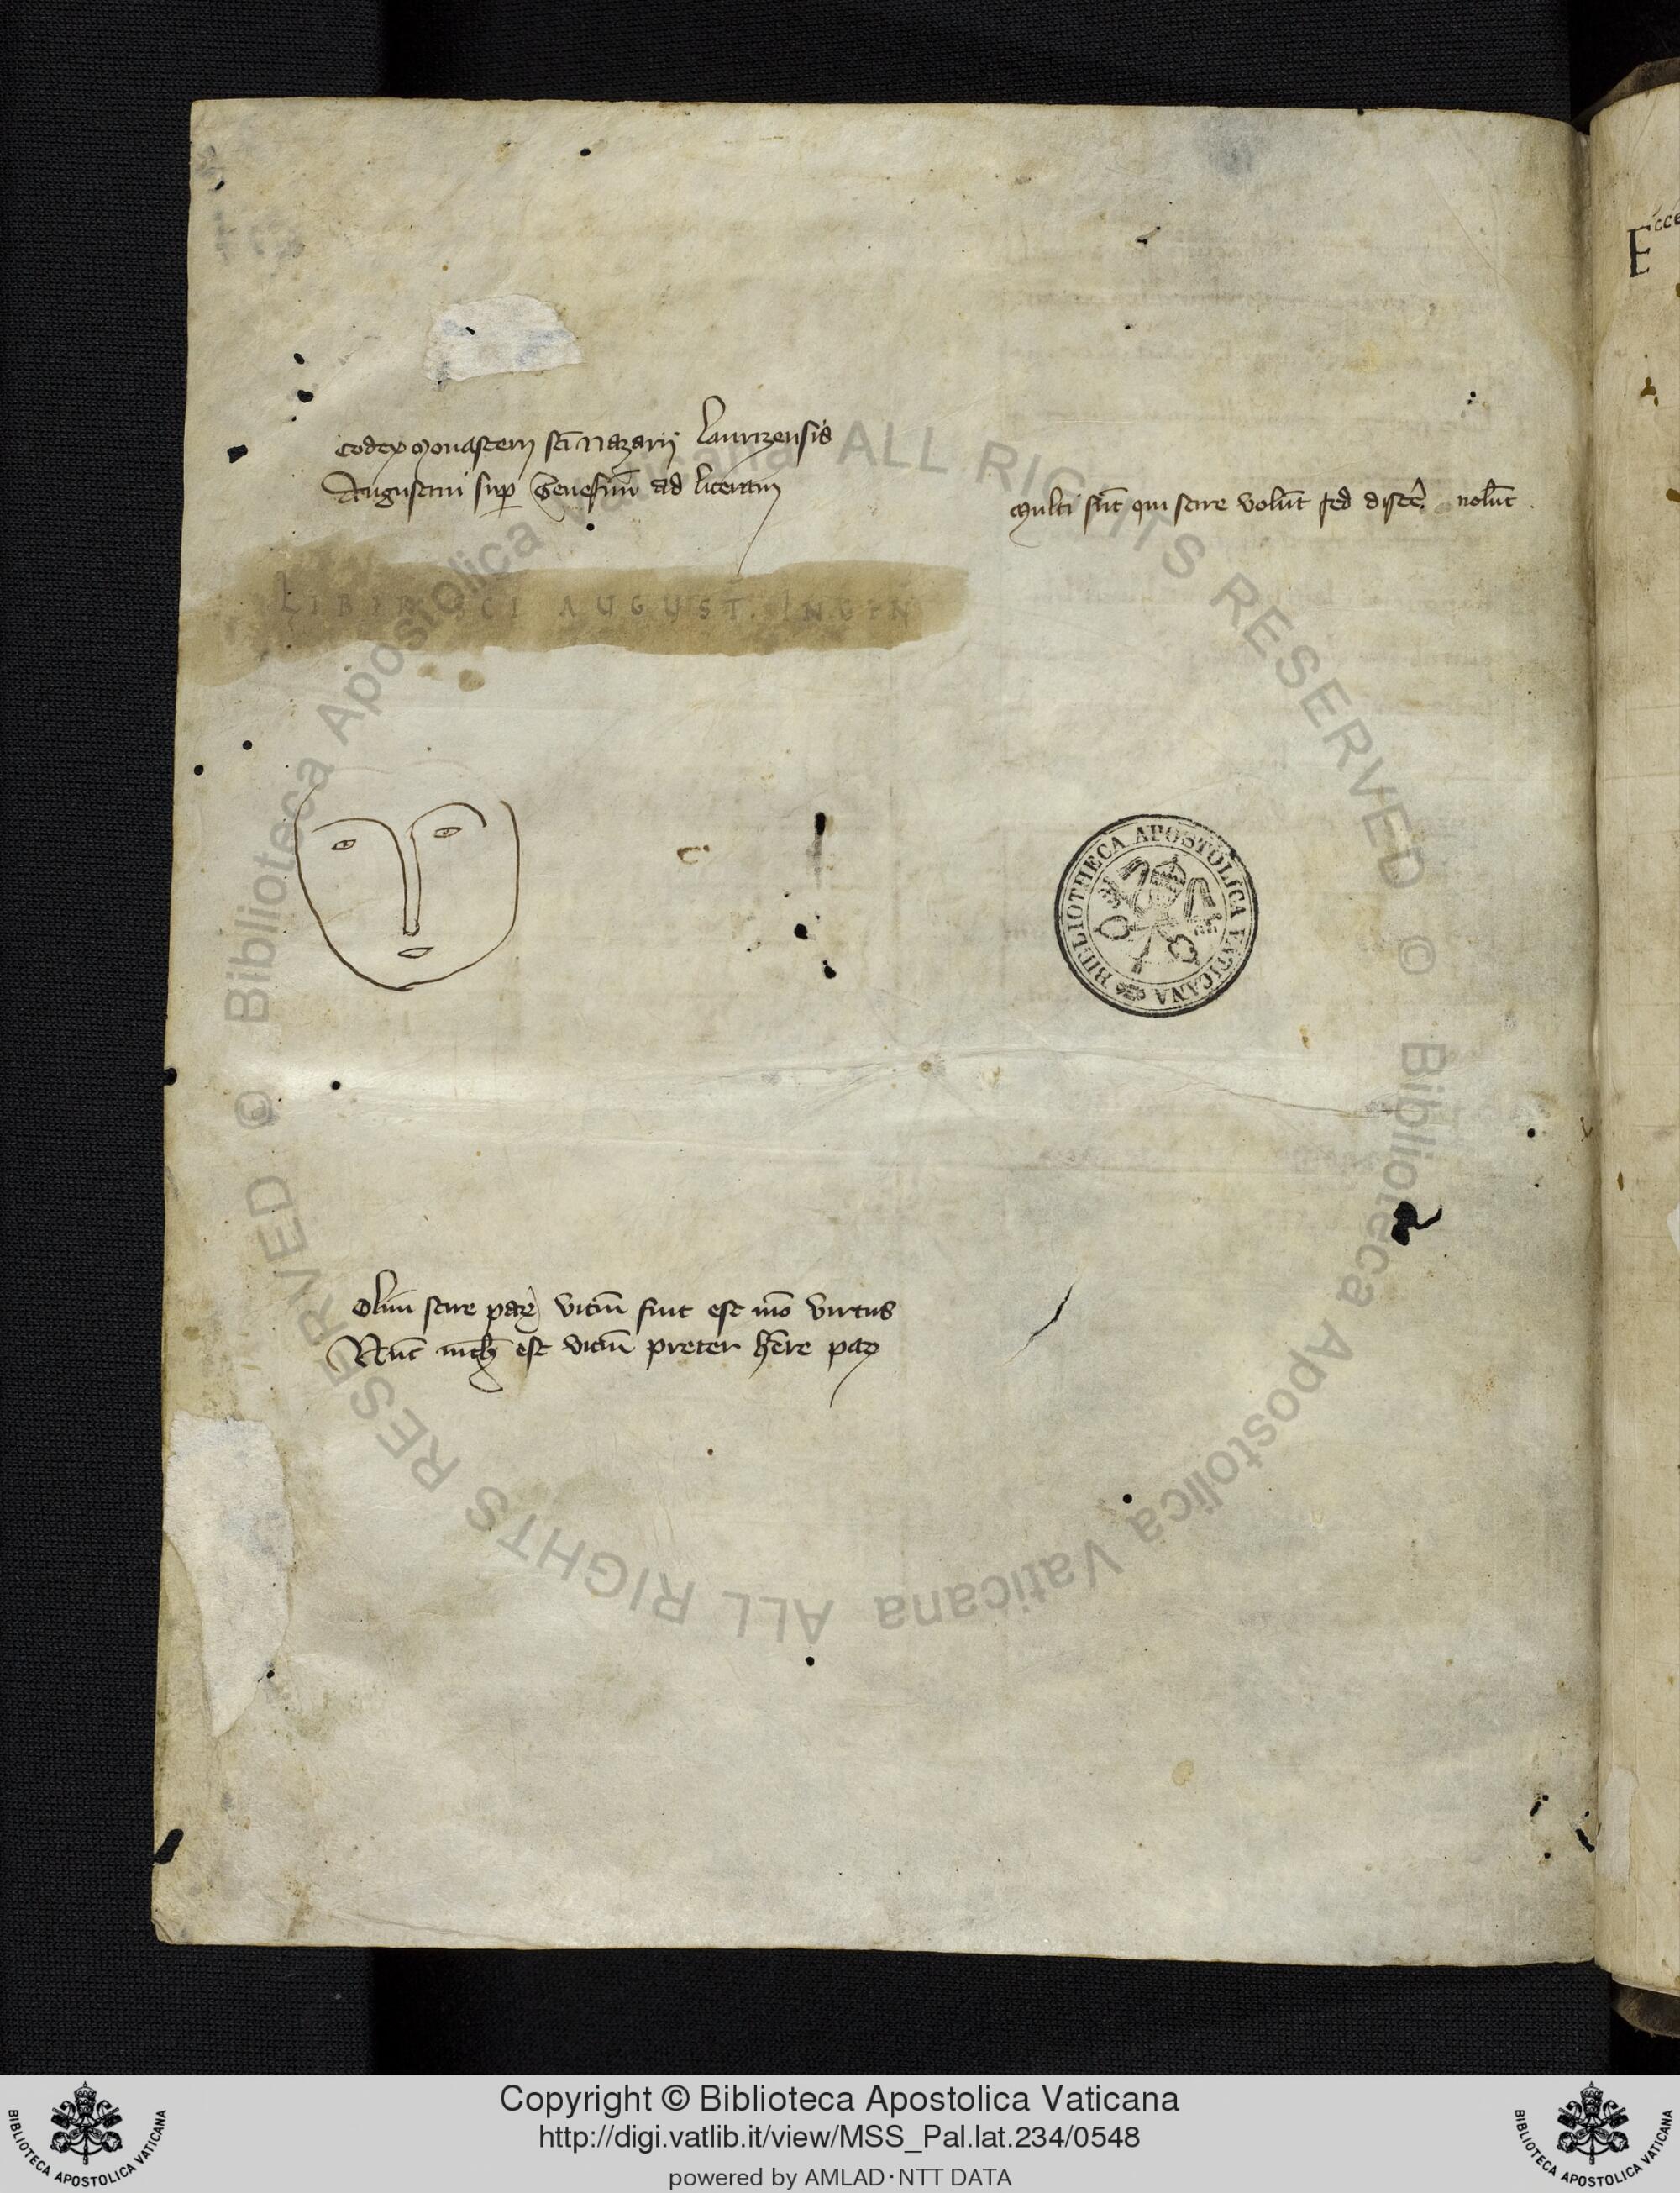 codex monasterij sci nazarij laurizensis
Augustini sup Genesim ad literam
Multi sūt qui scire volūt sed discē nolūt
LIBER SCI AUGUST. IN GEN
BIBLIOTHECA APOSTOLICA VATICANA
Olim scire parū vitiū fuit est mō virtus
Nūc nich est vitiū preter hēre parū
Ecce
© Biblioteca Apostolica Vaticana ALL RIGHTS RESERVED © Biblioteca Apostolica Vaticana ALL RIGHTS RESERVED
Copyright © Biblioteca Apostolica Vaticana
http://digi.vatlib.it/view/MSS_Pal.lat.234/0548
powered by AMLAD·NTT DATA
BIBLIOTECA APOSTOLICA VATICANA
BIBLIOTECA APOSTOLICA VATICANA